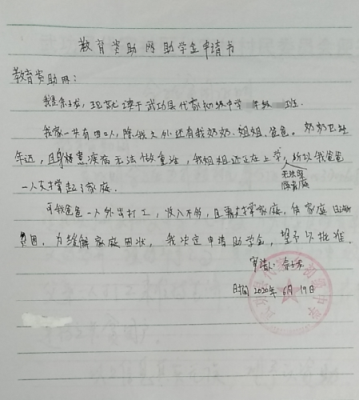 教育资助网助学金申请书
教育资助网：
我是 ，现就读于武功县代家初级中学 年级 班。
我家一共有四口人，除我之外还有我奶奶、姐姐、爸爸。奶奶已经
年迈，且身患疾病无法做重活，我姐姐还正在上学，所以我爸爸
一人支撑起了家庭。
可我爸爸一人外出打工，收入不多，且需支撑家庭，使家庭因此
贫困，为缓解家庭困状，我决定申请助学金，望予以批准。
申请人：
日期：2020年6月19日